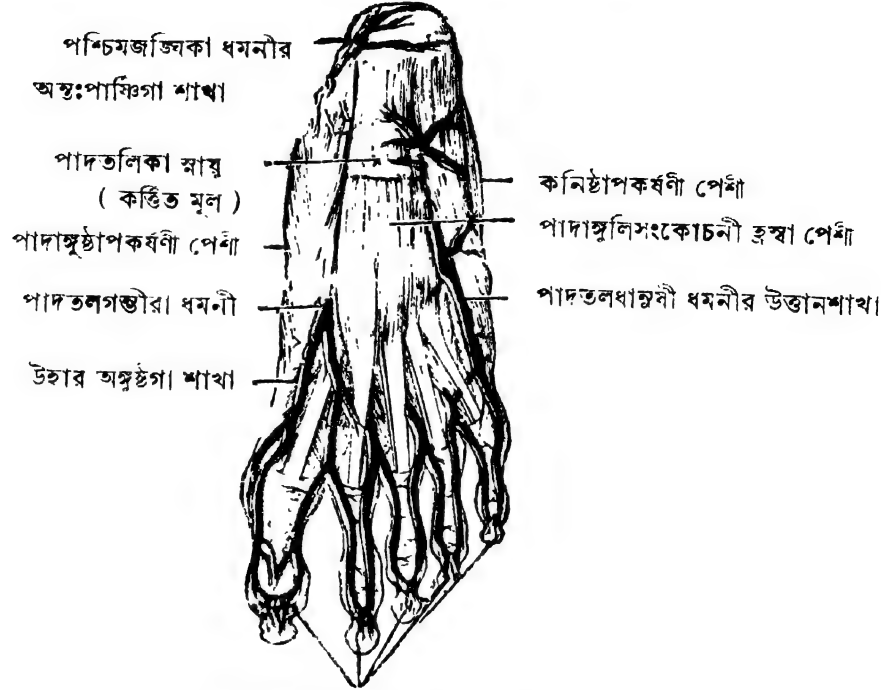 পশ্চিমজঙ্ঘিকা ধমনীর
অন্তঃপার্ষ্ণিগা শাখা
পাদতলিকা স্নায়ু
( কর্ত্তিত মূল )
পাদাঙ্গুষ্ঠাপকর্ষণী পেশী
পাদতলগম্ভীরা ধমনী
উহার অঙ্গুষ্ঠগা শাখা
কনিষ্ঠাপকর্ষণী পেশী
পাদাঙ্গুলিসংকোচনী হ্রস্বা পেশী
পাদতলধানুষী ধমনীর উত্তানশাখা